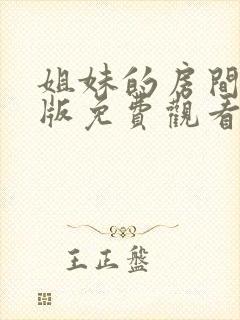 姐妹的房間
版免費觀看
王正盤